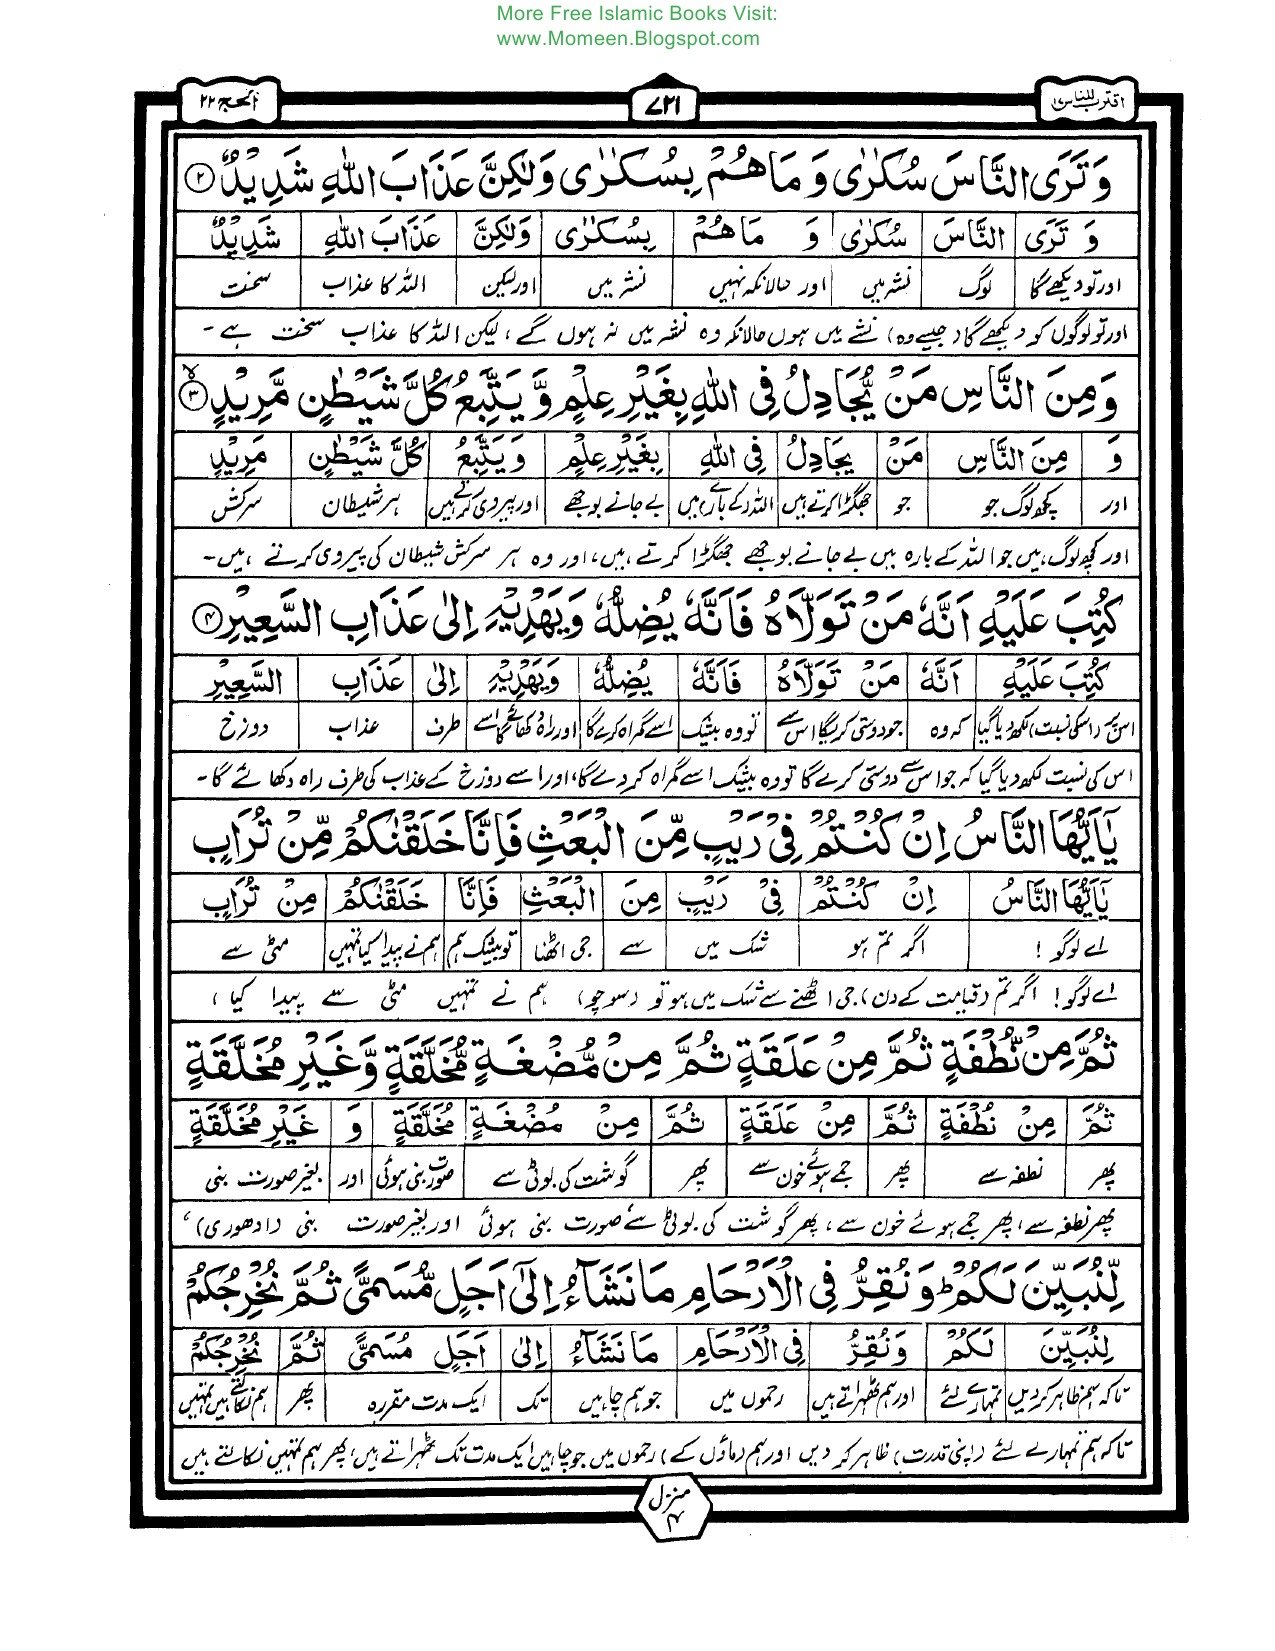 More Free Islamic Books Visit:
www.Momeen.Blogspot.com
اقترب للناس ۱۷
۷۲۱
الحج ۲۲
وَ تَرَى النَّاسَ سُكٰرٰى وَ مَا هُمْ بِسُكٰرٰى وَلٰكِنَّ عَذَابَ اللّٰهِ شَدِيْدٌ ﴿۲﴾
وَ تَرَى النَّاسَ سُكٰرٰى وَ مَا هُمْ بِسُكٰرٰى وَلٰكِنَّ عَذَابَ اللّٰهِ شَدِيْدٌ
اور تو دیکھے گا لوگ نشہ میں اور حالانکہ نہیں نشہ میں اور لیکن اللہ کا عذاب سخت
اور تو لوگوں کو دیکھے گا (جیسے وہ) نشے میں ہوں حالانکہ وہ نشہ میں نہ ہوں گے، لیکن اللہ کا عذاب سخت ہے۔
وَمِنَ النَّاسِ مَنْ يُّجَادِلُ فِي اللّٰهِ بِغَيْرِ عِلْمٍ وَّ يَتَّبِعُ كُلَّ شَيْطٰنٍ مَّرِيْدٍ ﴿۳﴾
وَ مِنَ النَّاسِ مَنْ يُجَادِلُ فِي اللّٰهِ بِغَيْرِ عِلْمٍ وَ يَتَّبِعُ كُلَّ شَيْطٰنٍ مَرِيْدٍ
اور کچھ لوگ جو جو جھگڑا کرتے ہیں اللہ کے بارے میں بے جانے بوجھے اور پیروی کرتے ہیں ہر شیطان سرکش
اور کچھ لوگ ہیں جو اللہ کے بارہ میں بے جانے بوجھے جھگڑا کرتے ہیں، اور وہ ہر سرکش شیطان کی پیروی کرتے ہیں۔
كُتِبَ عَلَيْهِ اَنَّهٗ مَنْ تَوَلَّاهُ فَاَنَّهٗ يُضِلُّهٗ وَيَهْدِيْهِ اِلٰى عَذَابِ السَّعِيْرِ ﴿۴﴾
كُتِبَ عَلَيْهِ اَنَّهٗ مَنْ تَوَلَّاهُ فَاَنَّهٗ يُضِلُّهٗ وَيَهْدِيْهِ اِلٰى عَذَابِ السَّعِيْرِ
اس پر (اسکی نسبت) لکھ دیا گیا کہ وہ جو دوستی کریگا اس سے تو وہ بیشک اسے گمراہ کرے گا اور راہ دکھائے گا اسے طرف عذاب دوزخ
اس کی نسبت لکھ دیا گیا کہ جو اس سے دوستی کرے گا تو وہ بیشک اسے گمراہ کر دے گا، اور اسے دوزخ کے عذاب کی طرف راہ دکھائے گا۔
يٰۤاَيُّهَا النَّاسُ اِنْ كُنْتُمْ فِيْ رَيْبٍ مِّنَ الْبَعْثِ فَاِنَّا خَلَقْنٰكُمْ مِّنْ تُرَابٍ
يٰۤاَيُّهَا النَّاسُ اِنْ كُنْتُمْ فِيْ رَيْبٍ مِنَ الْبَعْثِ فَاِنَّا خَلَقْنٰكُمْ مِنْ تُرَابٍ
اے لوگو! اگر تم ہو شک میں سے جی اٹھنا تو بیشک ہم ہم نے پیدا کیا تمہیں مٹی سے
اے لوگو! اگر تم (قیامت کے دن) جی اٹھنے سے شک میں ہو تو (سوچو) ہم نے تمہیں مٹی سے پیدا کیا،
ثُمَّ مِنْ نُّطْفَةٍ ثُمَّ مِنْ عَلَقَةٍ ثُمَّ مِنْ مُّضْغَةٍ مُّخَلَّقَةٍ وَّ غَيْرِ مُخَلَّقَةٍ
ثُمَّ مِنْ نُطْفَةٍ ثُمَّ مِنْ عَلَقَةٍ ثُمَّ مِنْ مُضْغَةٍ مُخَلَّقَةٍ وَ غَيْرِ مُخَلَّقَةٍ
پھر نطفہ سے پھر جمے ہوئے خون سے پھر گوشت کی بوٹی سے صورت بنی ہوئی اور بغیر صورت بنی
پھر نطفہ سے، پھر جمے ہوئے خون سے، پھر گوشت کی بوٹی سے صورت بنی ہوئی اور بغیر صورت بنی (ادھوری)،
لِّنُبَيِّنَ لَكُمْ ؕ وَ نُقِرُّ فِي الْاَرْحَامِ مَا نَشَآءُ اِلٰۤى اَجَلٍ مُّسَمًّى ثُمَّ نُخْرِجُكُمْ
لِنُبَيِّنَ لَكُمْ وَنُقِرُّ فِي الْاَرْحَامِ مَا نَشَآءُ اِلٰى اَجَلٍ مُسَمًّى ثُمَّ نُخْرِجُكُمْ
تاکہ ہم ظاہر کردیں تمہارے لئے اور ہم ٹھہراتے ہیں رحموں میں جو ہم چاہیں تک ایک مدت مقررہ پھر ہم نکالتے ہیں تمہیں
تاکہ ہم تمہارے لئے (اپنی قدرت) ظاہر کر دیں اور ہم (ماؤں کے) رحموں میں جو چاہیں ایک مدت تک ٹھہراتے ہیں، پھر ہم تمہیں نکالتے ہیں
منزل
۴